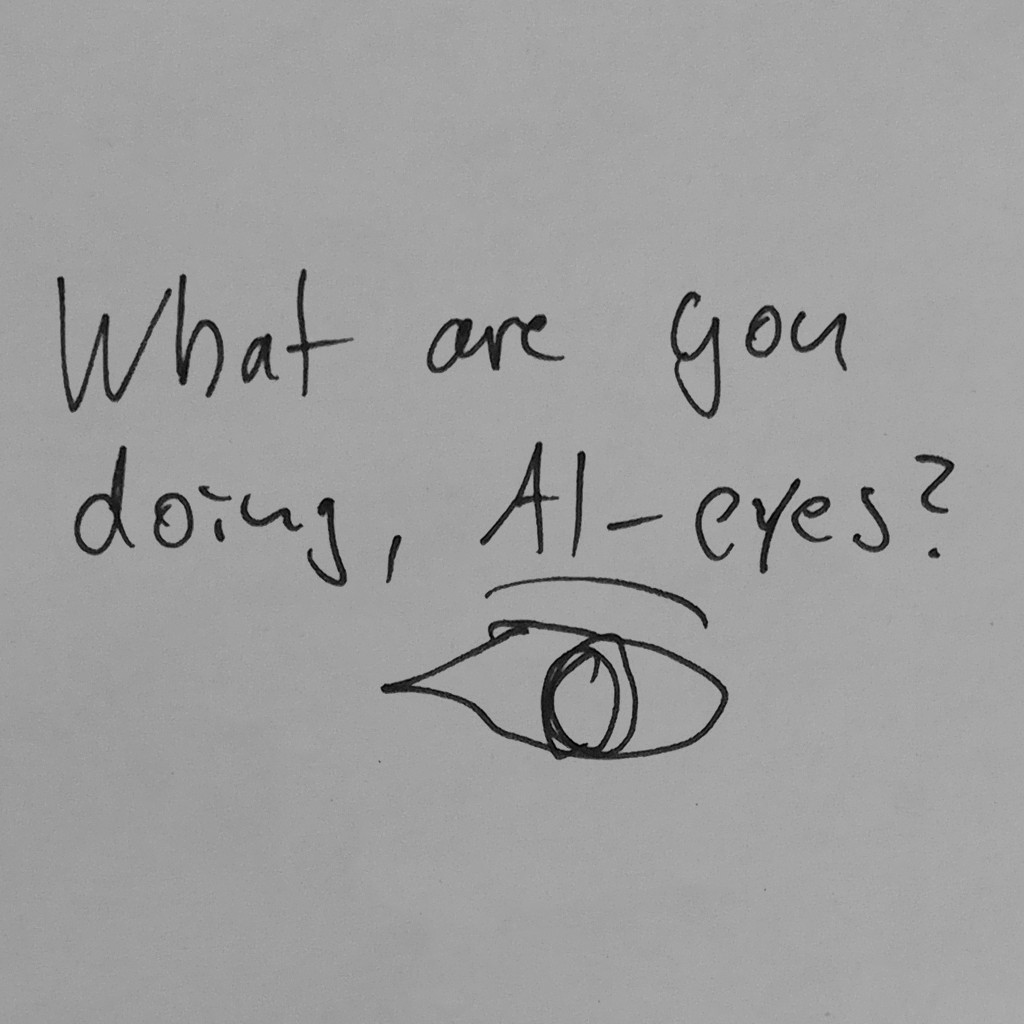 What are you
doing, AI-eyes?